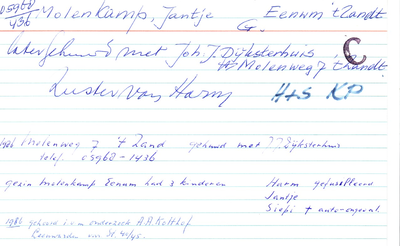 05960/1436 Molenkamp, Jantje G. Eenum 't Zandt
later gehuwd met Joh. J. Dijksterhuis
Molenweg 7 't Zandt.
C
Zuster van Harm H+S KP
1986 Molenweg 7 't Zand gehuwd met J J Dijksterhuis
telef. 05960-1436
gezin Molenkamp Eenum had 3 kinderen
Harm gefusilleerd
Jantje
Siepi + auto-ongeval.
1986 gehoord i.v.m. onderzoek A.A. Kolthof
Leeuwarden